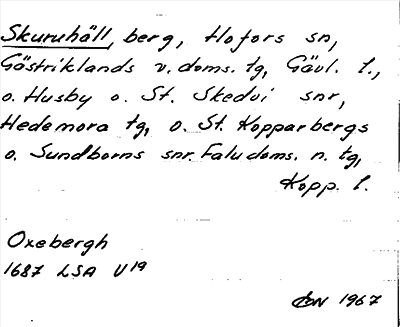 Skuruhäll, berg, Hofors sn,
Gästriklands v. doms. tg, Gävl. l.,
o. Husby o. St. Skedvi snr,
Hedemora tg, o. St. Kopparbergs
o. Sundborns snr. Falu doms. n. tg,
Kopp. l.
Oxebergh
1687 LSA U19
1967